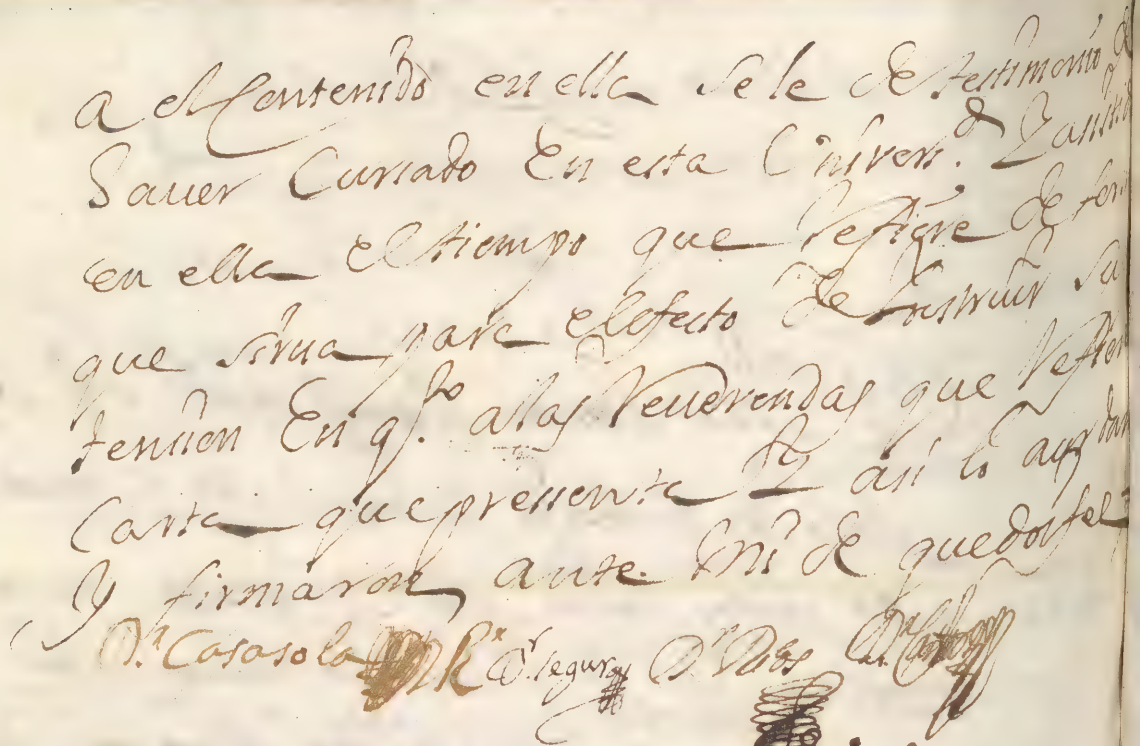 a el Contenido en ella se le de testimonio de
Sauer Cursado En esta Univers.d Y assis
en ella el tiempo que Refiere de for
que sirua para el efecto de Instruir su
tencion En q.to a las Reuerendas que Refier
Carta que pressenta Y asi lo acordar
Y firmaron ante mi de que doi fee
D.r Casasola R.r D.r segura D.r Dios